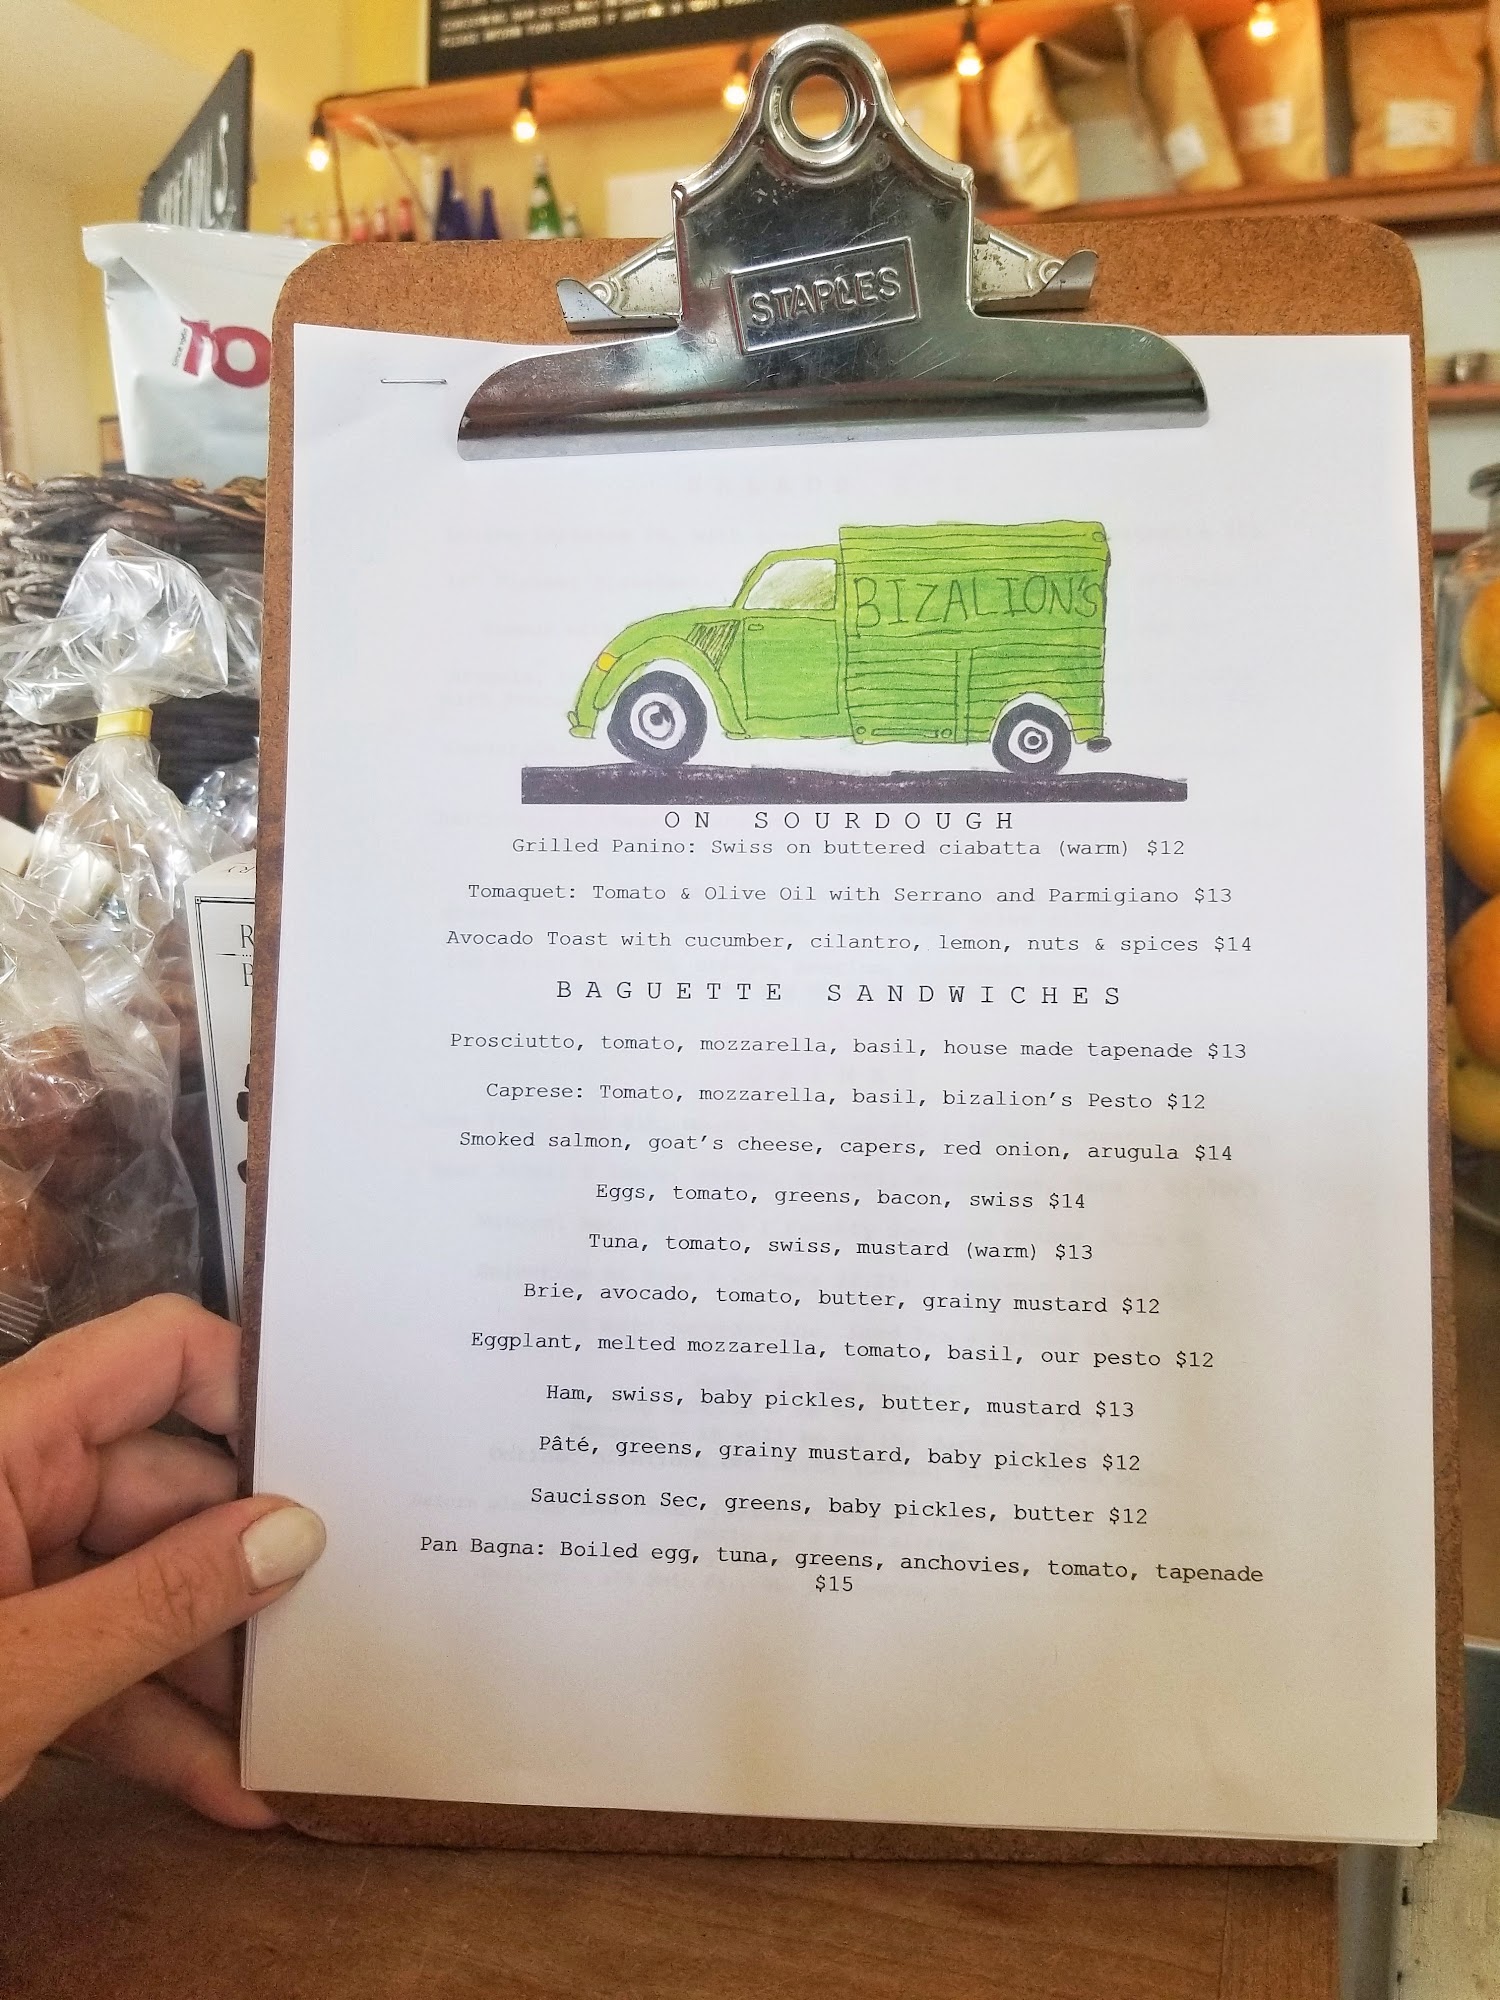 STAPLES
since 1986
TO
BIZALION'S
ON SOURDOUGH
Grilled Panino: Swiss on buttered ciabatta (warm) $12
Tomaquet: Tomato & Olive Oil with Serrano and Parmigiano $13
Avocado Toast with cucumber, cilantro, lemon, nuts & spices $14
BAGUETTE SANDWICHES
Prosciutto, tomato, mozzarella, basil, house made tapenade $13
Caprese: Tomato, mozzarella, basil, bizalion's Pesto $12
Smoked salmon, goat's cheese, capers, red onion, arugula $14
Eggs, tomato, greens, bacon, swiss $14
Tuna, tomato, swiss, mustard (warm) $13
Brie, avocado, tomato, butter, grainy mustard $12
Eggplant, melted mozzarella, tomato, basil, our pesto $12
Ham, swiss, baby pickles, butter, mustard $13
Pâté, greens, grainy mustard, baby pickles $12
Saucisson Sec, greens, baby pickles, butter $12
Pan Bagna: Boiled egg, tuna, greens, anchovies, tomato, tapenade
$15